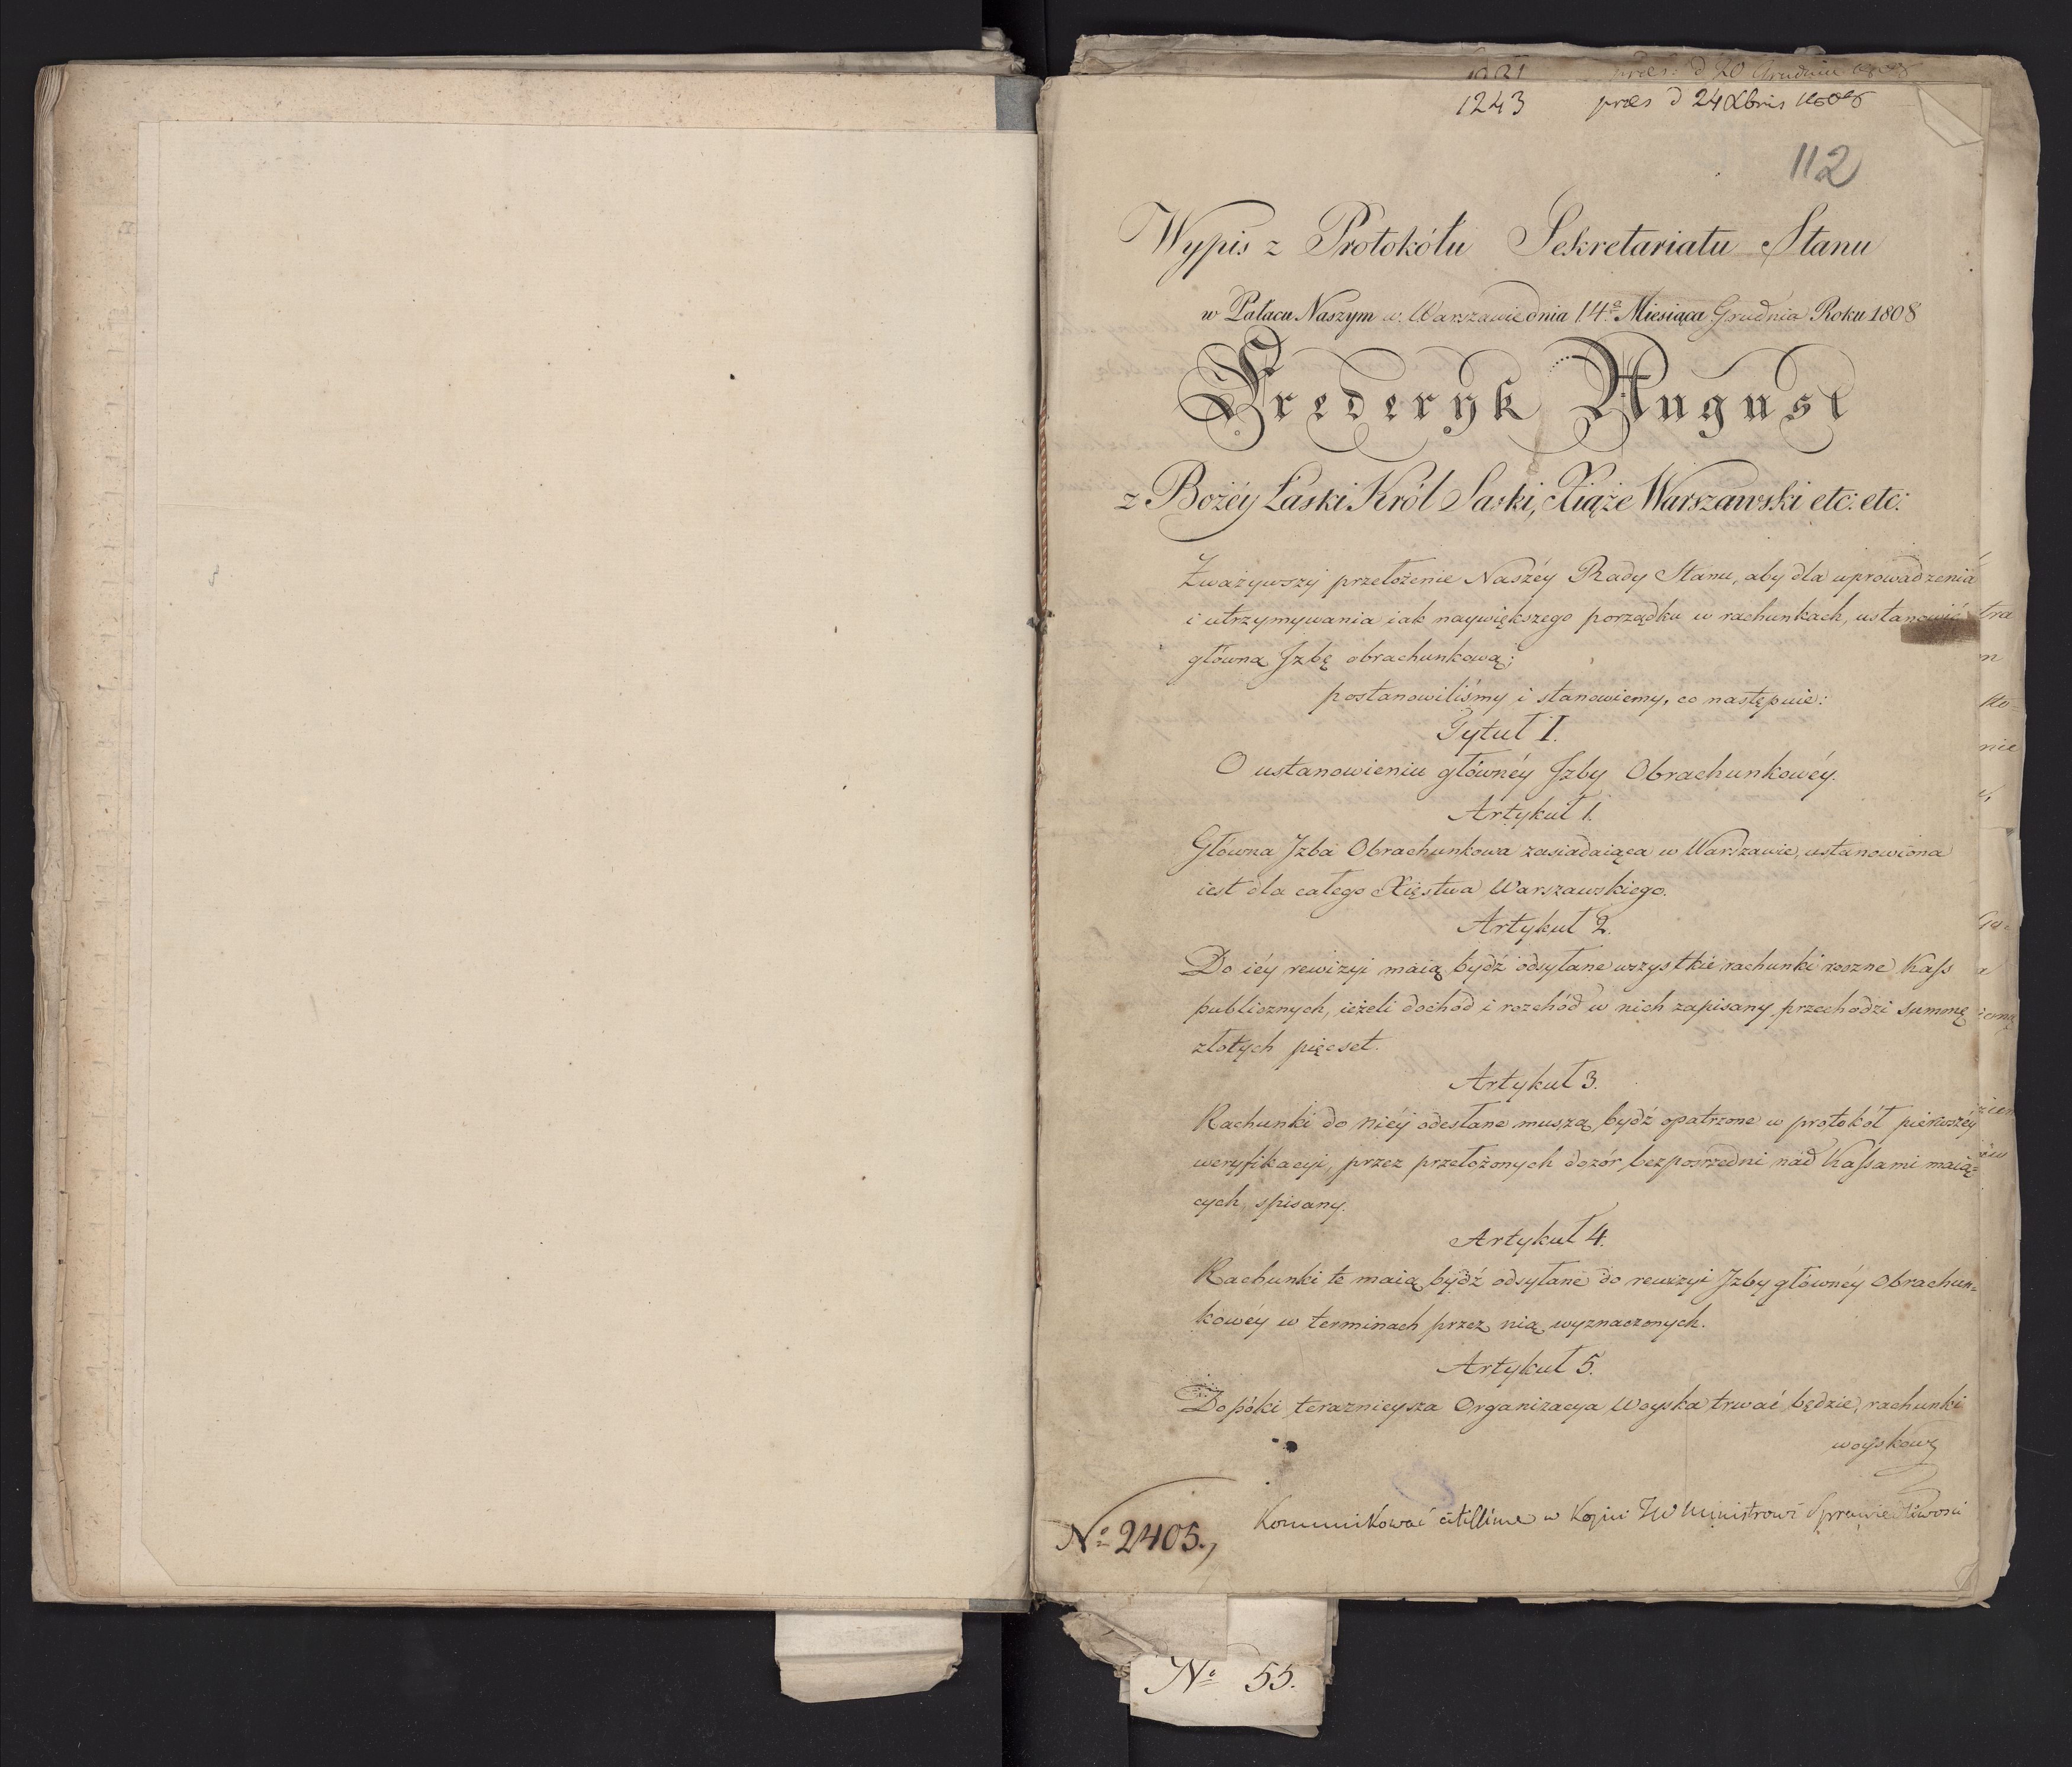 pres: d 20 Grudnia 1808
1243 pres d 24 Xbris 1808
112
Wypis z Protokółu Sekretariatu Stanu
w Pałacu Naszym w Warszawie dnia 14º Miesiąca Grudnia Roku 1808
Frederyk August
z Bożéy Łaski Król Saski, Xiąże Warszawski etc: etc:
Zważywszy przełożenie Naszéy Rady Stanu, aby dla uprowadzenia
i utrzymywania iak naywiększego porządku w rachunkach, ustanowić
główną Jzbę obrachunkową;
postanowiliśmy i stanowiemy, co następuie:
Tytuł I.
O ustanowieniu główney Jzby Obrachunkowéy.
Artykuł 1.
Główna Jzba Obrachunkowa zasiadaiąca w Warszawie, ustanowiona
iest dla całego Xięstwa Warszawskiego.
Artykuł 2.
Do iéy rewizyi maią bydź odsyłane wszystkie rachunki roczne Kass
publicznych, ieżeli dochód i rozchód w nich zapisany przechodzi summę
złotych pięcset.
Artykuł 3.
Rachunki do niéy odesłane muszą bydź opatrzone w protokół pierwszéy
weryfikacyi, przez przełożonych dozór bezpośrzedni nad Kassami maią=
cych spisany.
Artykuł 4.
Rachunki te maią bydź odsyłane do rewizyi Jzby główney Obrachun=
kowéy w terminach przez nią wyznaczonych.
Artykuł 5.
Dopóki teraznieysza Organizacya Woyska trwać będzie, rachunki
woyskowe
Kommunikować citissime w Kopii JW Ministrowi Sprawiedliwosci
Nº 2405.
Nº 55.